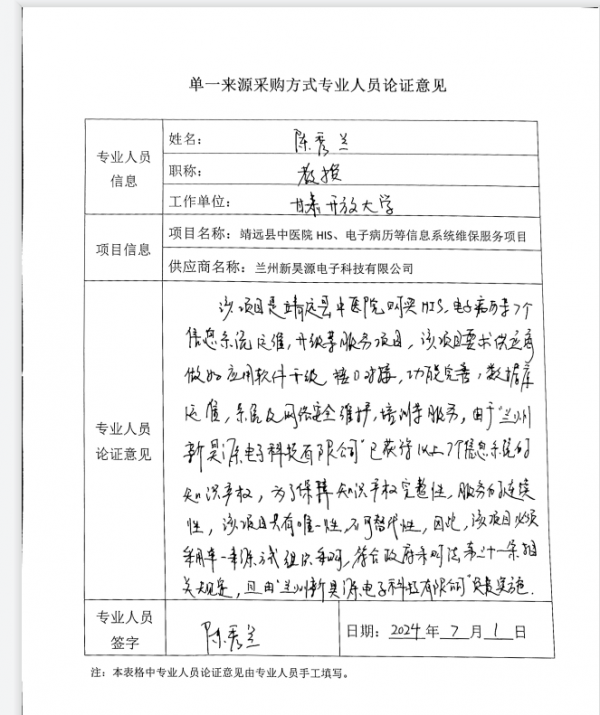 单一来源采购方式专业人员论证意见
专业人员
信息
姓名：
陈秀兰
职称：
教授
工作单位：
甘肃开放大学
项目信息
项目名称：靖远县中医院 HIS、电子病历等信息系统维保服务项目
供应商名称：兰州新昊源电子科技有限公司
专业人员
论证意见
该项目是靖远县中医院购买HIS、电子病历等7个
信息系统运维，升级等服务项目，该项目要求供应商
做好应用软件升级，接口对接，功能完善，数据库
运维，系统及网络安全维护，培训等服务，由于“兰州
新昊源电子科技有限公司”已获得以上7个信息系统的
知识产权，为了保障知识产权完整性，服务的连续
性，该项目具有唯一性，不可替代性，因此，该项目必须
采用单一来源方式组织采购，符合政府采购法第三十一条相
关规定，且由“兰州新昊源电子科技有限公司”负责实施.
专业人员
签字
陈秀兰
日期：2024年7月1日
注：本表格中专业人员论证意见由专业人员手工填写。